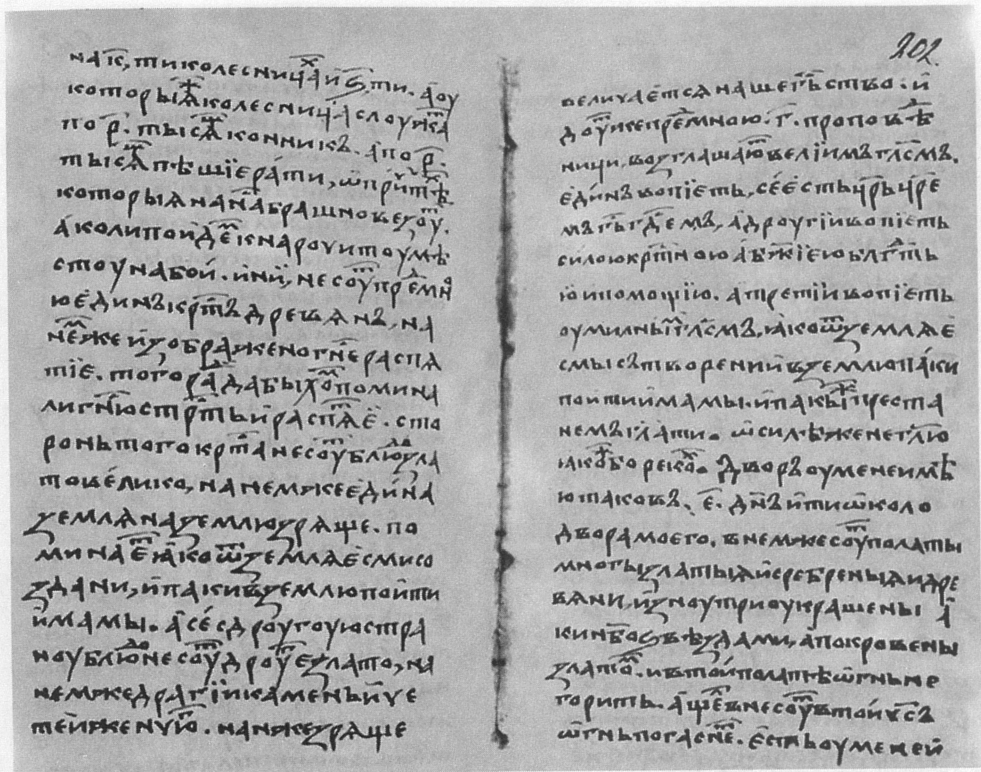 на к҃, ти колесницаⷯ и ѕ҃, ти. а оу
которыⷯѧ колесница слоужаⷮ
по р҃. тысѧⷱ конникъ. а по р҃.
тысѧⷱ пѣшїе рати, ѿпричⷮѣⷯ
которыѧ на наⷭ брашно везоуⷮ.
а коли поидеⷨ к нароуитоумѣ
стоу на бои. инїи, несоуⷮ преⷣмноⷨ
ю единъ крⷭтъ древѧнъ, на
неⷨже изображено гн҃е распѧ
тїе. того раⷣ дабыхоⷨ помина
ли гн҃ю стрⷭть и распѧтⷷе. сто
роны того крⷭта несоуⷮ блюⷣ зла
то велико, на немже едина
землѧ на землю зрѧще. по
минаеⷮ ꙗко ѿ землѧ есми со
здани, и паки в землю поити
имамы. а се с дроугоую стра
ноу блюⷣ несоуⷮ дроуⷢе злато, на
немже драгїи камень и че
теи жемчюⷢ. на нѧже зрѧще
202.
величаетсѧ наше гⷭ҇ьство. и
доуже преⷣмною. г҃. проповѣⷣ
ници, возглашаюⷮ велїимъ глⷭмъ.
единъ вопїеть, се есть цр҃ь цр҃е
мъ г҃ь гдⷭемъ, а дроугїи вопїеть
силою крⷭтною а бж҃їею бл҃гтⷣь
ю и помощїю. а третїи вопїеть
оумилныⷨ глⷭмъ, ꙗко ѿ землѧ е
смы сътворении в землю паки
поити имамы. и пакы преста
немъ гл҃ати. ѿ силѣ же не гл҃ю
ꙗкоⷤ бо рекоⷯ. дворъ оу мене имѣ
ю таковъ. е҃. дн҃ъ ити ѿколо
двора моего. в немже соуⷮ полаты
многы златыѧ и сребреныѧ и дре
вѧни, изноутри оукрашены а
ки нб҃о ѕвѣздами, а покровены
златоⷨ. и в тои полатѣ ѿгнь не
горить. аще внесоуⷮ в тои чⷭъ
ѿгнь погаснеⷮ. есть оу мене и